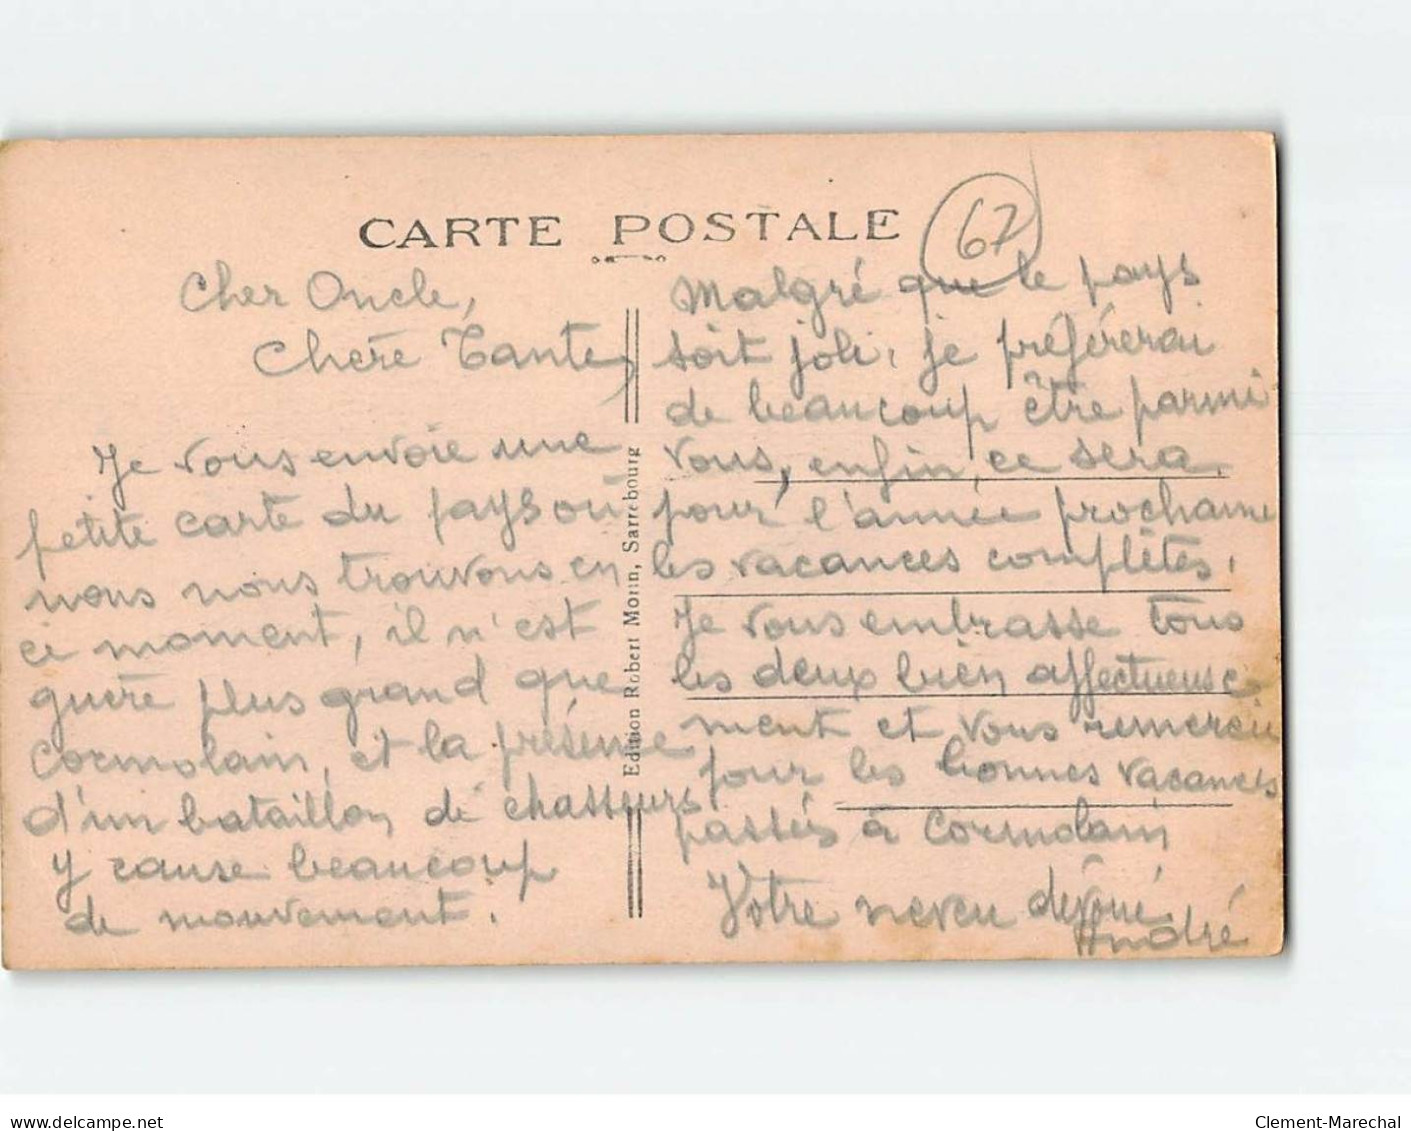 CARTE POSTALE
67
Cher Oncle,
Chère Tante,
Je vous envoie une
petite carte du pays où
nous nous trouvons en
ce moment, il n'est
guère plus grand que
Cormolain, et la présence
d'un bataillon de chasseurs
y cause beaucoup
de mouvement.
Edition Robert Morin, Sarrebourg
Malgré que le pays
soit joli, je préférerai
de beaucoup être parmi
vous, enfin, ce sera
pour l'année prochaine
les vacances complètes.
Je vous embrasse tous
les deux bien affectueuse
ment et vous remercie
pour les bonnes vacances
passées à Cormolain
Votre neveu dévoué
André
delcampe.net
Clement-Marechal